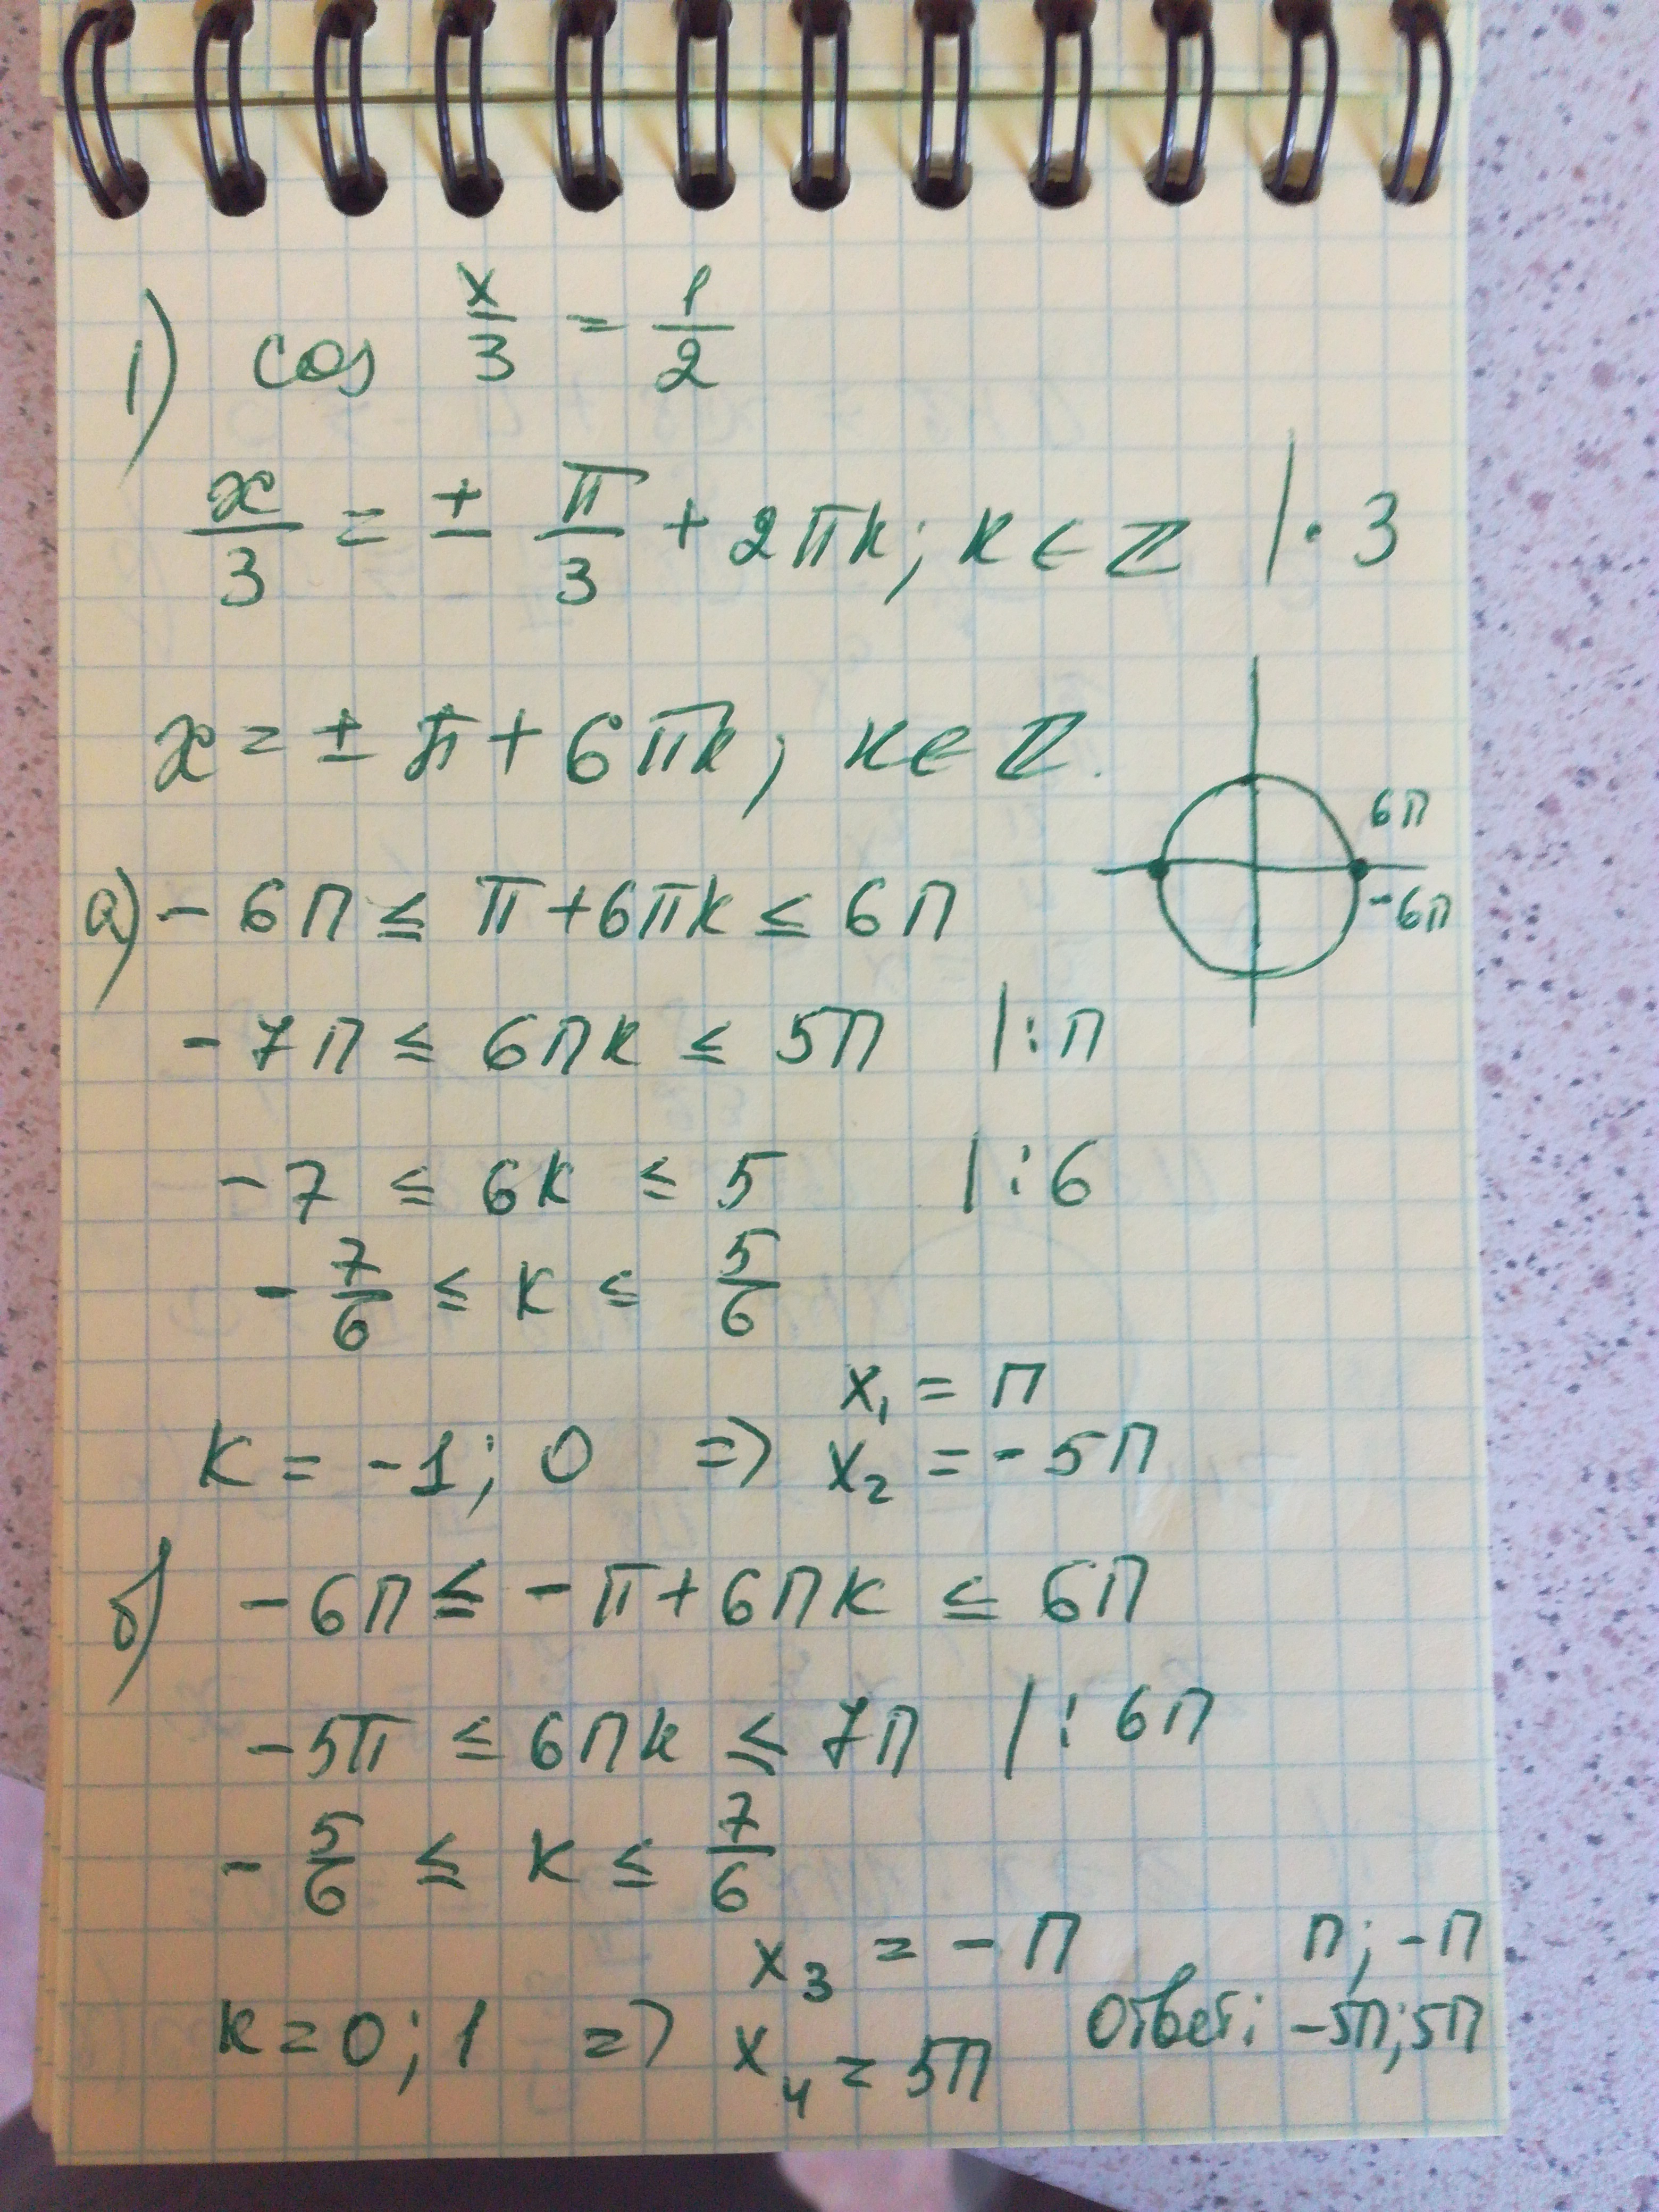 1) cos x/3 = 1/2
x/3 = ± π/3 + 2πk; k ∈ Z | · 3
x = ± π + 6πk; k ∈ Z.
6π
-6π
а) - 6π ≤ π + 6πk ≤ 6π
- 7π ≤ 6πk ≤ 5π | : π
- 7 ≤ 6k ≤ 5 | : 6
- 7/6 ≤ k ≤ 5/6
x₁ = π
k = -1; 0 => x₂ = - 5π
б) - 6π ≤ - π + 6πk ≤ 6π
- 5π ≤ 6πk ≤ 7π | : 6π
- 5/6 ≤ k ≤ 7/6
x₃ = - π
k = 0; 1 => x₄ = 5π
π; -π
Ответ: -5π; 5π